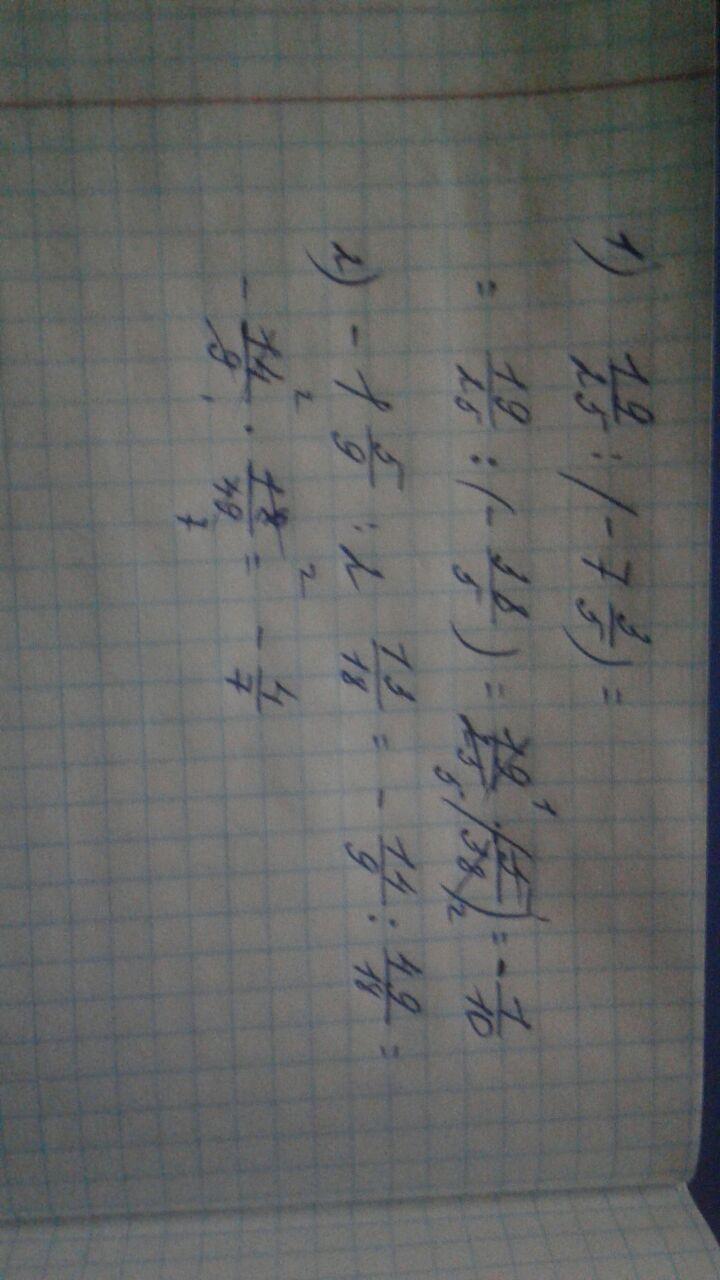 1) 19/25 : (-7 3/5) =
= 19/25 : (- 38/5) = 19/25 5 1 · (5/38 2) = - 1/10
2) - 1 5/9 : 2 13/18 = - 14/9 : 49/18 =
- 14/9 2 1 · 18/49 2 7 = - 4/7